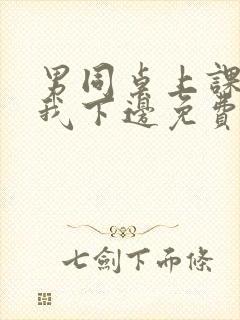 男同桌上課
我下邊免費
七劍下而條